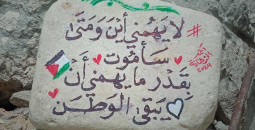 # لا يهمني أين ومتى
سأموت
بقدر ما يهمني أن
يبقى الوطن